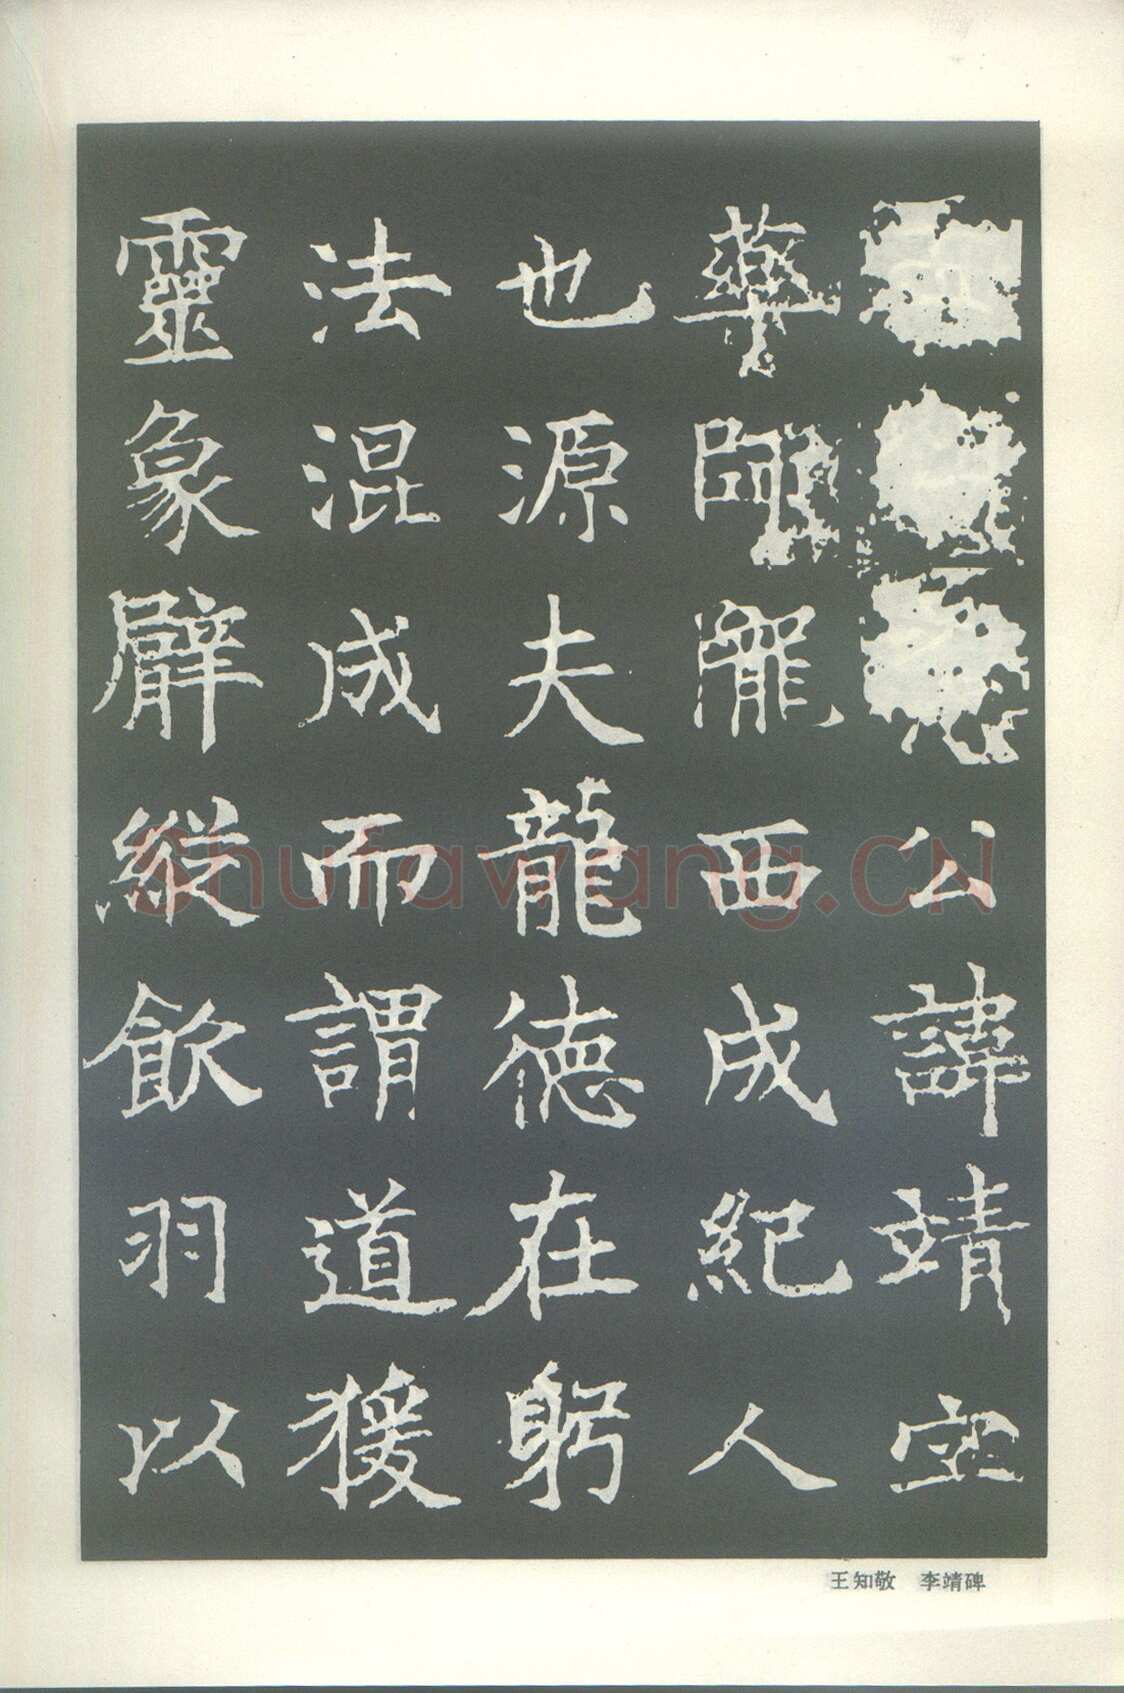 公諱靖字
藥師隴西成紀人
也源夫龍德在躬
法混成而謂道獲
靈象臂縱飲羽以
Shufawang.CN
王知敬 李靖碑